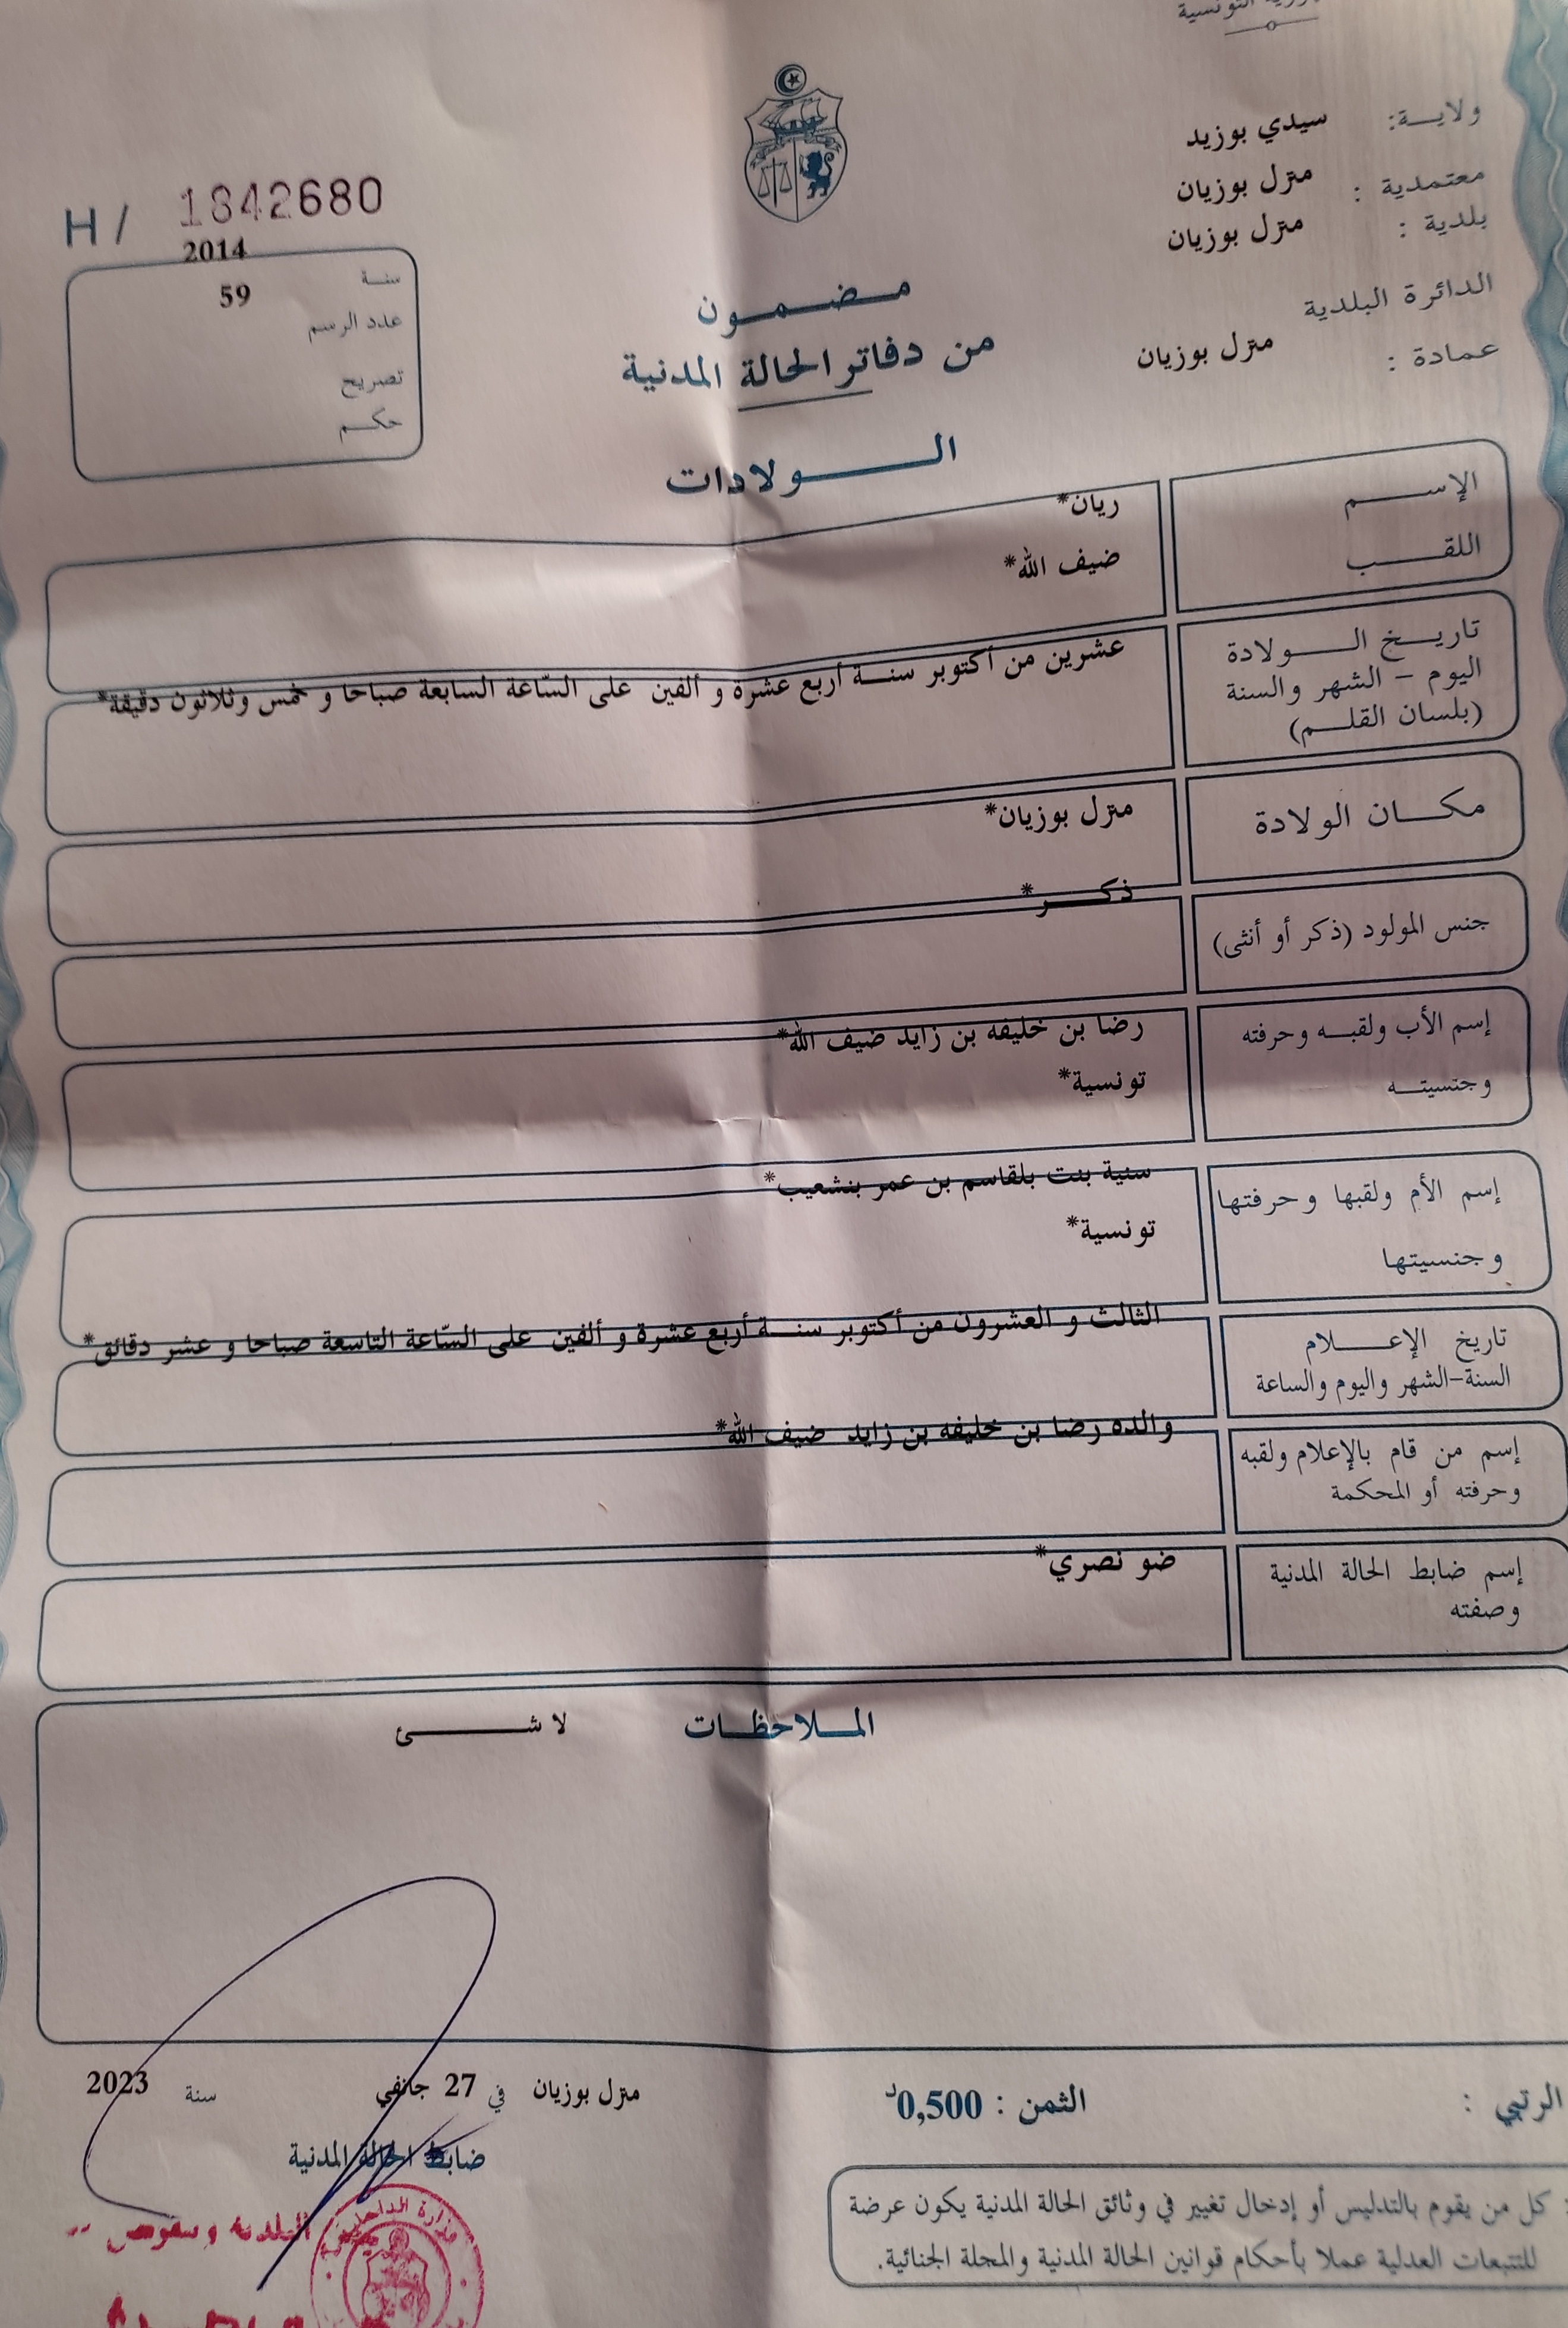 التونسية
ولايـــة: سيدي بوزيد
معتمدية : منزل بوزيان
بلدية : منزل بوزيان
الدائرة البلدية
عمادة : منزل بوزيان
H / 1842680
سنـة 2014
عدد الرسم 59
تصريح
حكـــم
مــضــمــون
من دفاتر الحالة المدنية
الــــولادات
الإســــم ريان*
اللقــــب ضيف الله*
تاريـــخ الــــولادة
اليوم – الشهر والسنة
(بلسان القلـــم)
عشرين من أكتوبر سنـــة أربع عشرة و ألفين على السّاعة السابعة صباحا و خمس وثلاثون دقيقة*
مكـــان الولادة منزل بوزيان*
جنس المولود (ذكر أو أنثى) ذكــــر*
إسم الأب ولقبــه وحرفته رضا بن خليفه بن زايد ضيف الله*
وجنسيتــــه تونسية*
إسم الأم ولقبها وحرفتها سنية بنت بلقاسم بن عمر بنشعيب*
وجنسيتها تونسية*
تاريخ الإعــــلام
السنة-الشهر واليوم والساعة
الثالث و العشرون من أكتوبر سنـــة أربع عشرة و ألفين على السّاعة التاسعة صباحا و عشر دقائق*
إسم من قام بالإعلام ولقبه
وحرفته أو المحكمة
والده رضا بن خليفه بن زايد ضيف الله*
إسم ضابط الحالة المدنية ضو نصري*
وصفته
المــلاحظــات لا شـــــئ
الرتبي : الثمن : 0,500د
منزل بوزيان في 27 جانفي سنة 2023
ضابط الحالة المدنية
كل من يقوم بالتدليس أو إدخال تغيير في وثائق الحالة المدنية يكون عرضة
للتتبعات العدلية عملا بأحكام قوانين الحالة المدنية والمجلة الجنائية.
وزارة الداخلية
البلدية وبتفويض